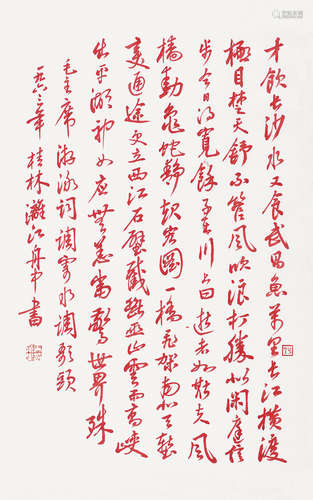 才饮长沙水又食武昌鱼万里长江横渡
极目楚天舒不管风吹浪打胜似闲庭信
步今日得宽馀子在川上曰逝者如斯夫风
樯动龟蛇静起宏图一桥飞架南北天堑
变通途更立西江石壁截断巫山云雨高峡
出平湖神女应无恙当惊世界殊
毛主席游泳词调寄水调歌头
一九六三年桂林漓江舟中书